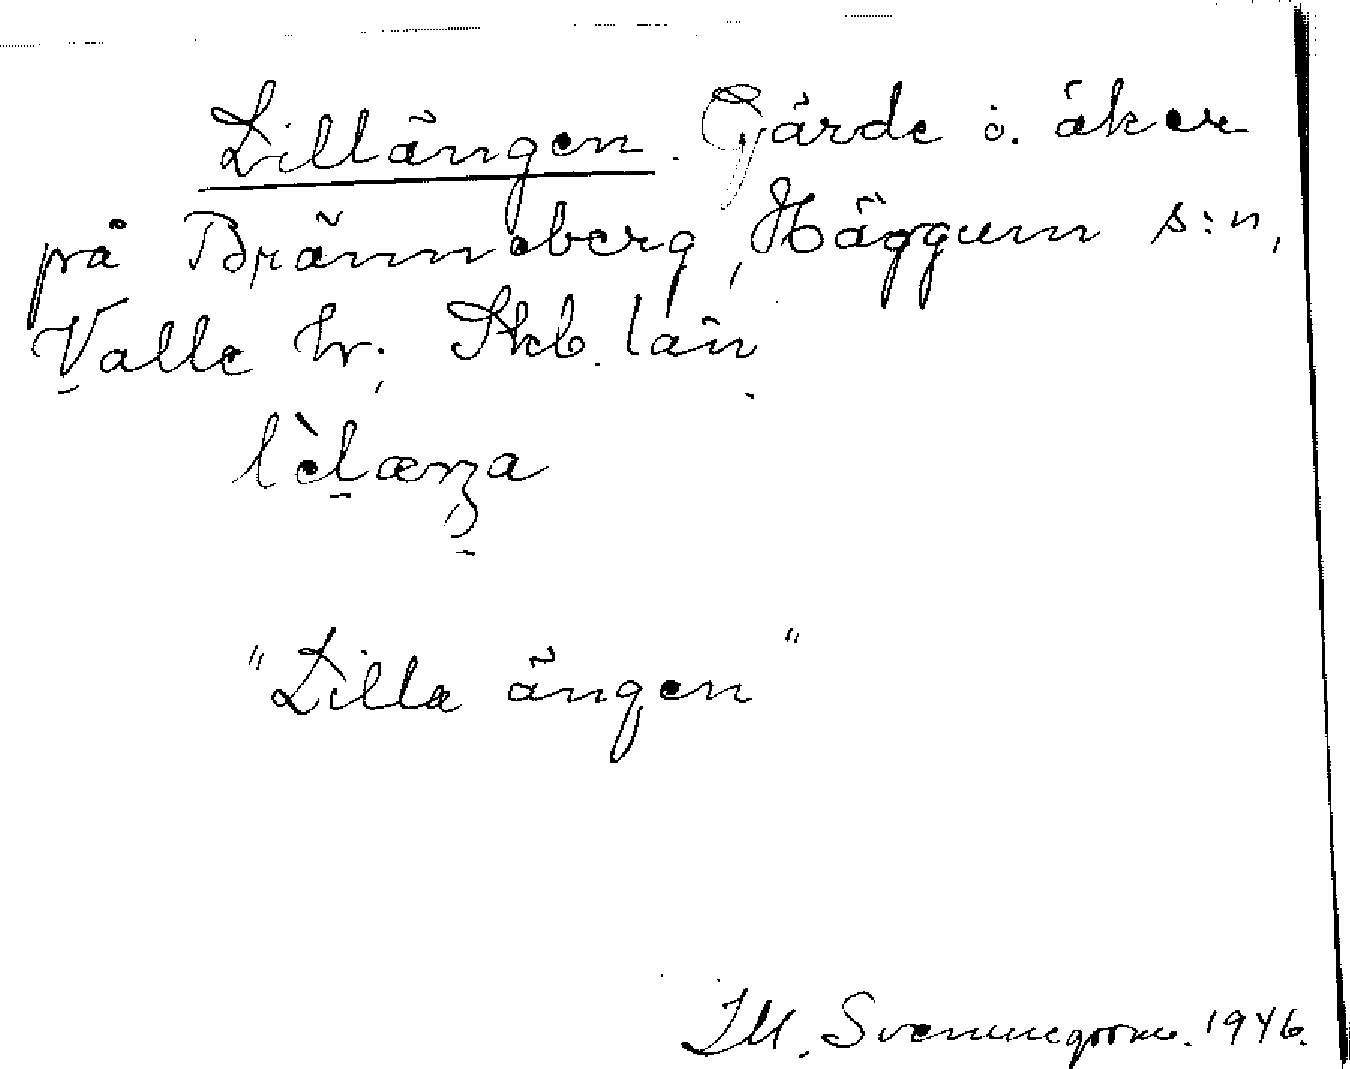 Lillängen. Gärde o. åker
på Bränneberg, Häggum s:n,
Valle hr; Skb. län.
"Lilla ängen"
Svenungsson. 1946.